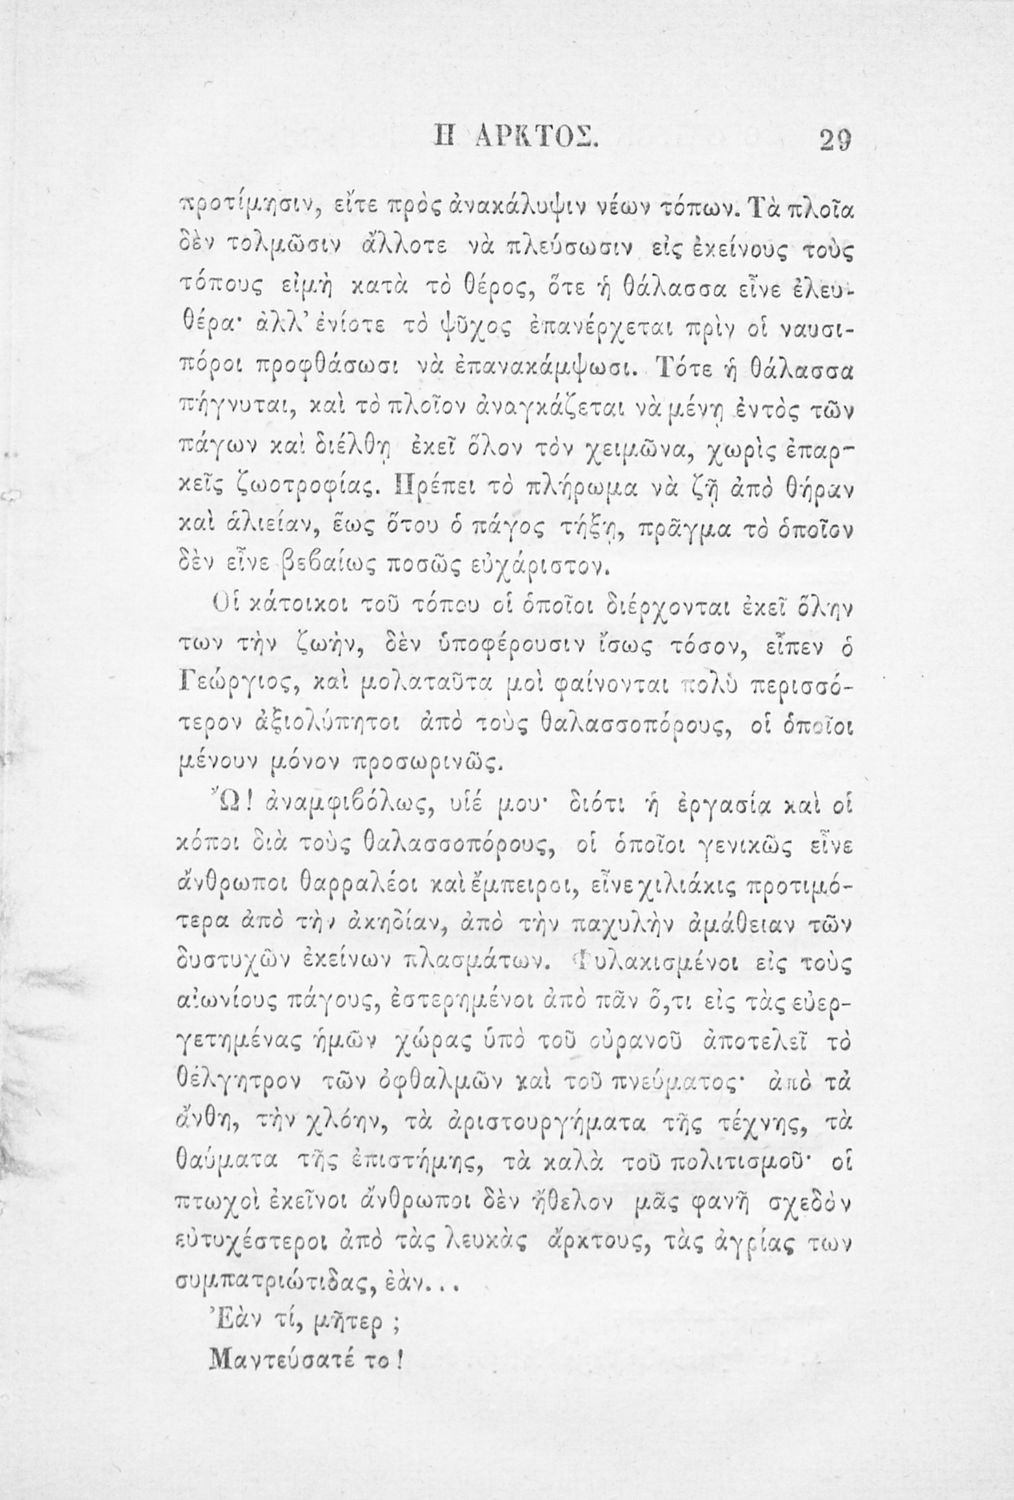 Η ΑΡΚΤΟΣ. 29
προτίμησιν, εἴτε πρὸς ἀνακάλυψιν νέων τόπων. Τὰ πλοῖα
δὲν τολμῶσιν ἄλλοτε νὰ πλεύσωσιν εἰς ἐκείνους τοὺς
τόπους εἰμὴ κατὰ τὸ θέρος, ὅτε ἡ θάλασσα εἶνε ἐλευ-
θέρα· ἀλλ' ἐνίοτε τὸ ψῦχος ἐπανέρχεται πρὶν οἱ ναυσι-
πόροι προφθάσωσι νὰ ἐπανακάμψωσι. Τότε ἡ θάλασσα
πήγνυται, καὶ τὸ πλοῖον ἀναγκάζεται νὰ μένῃ ἐντὸς τῶν
πάγων καὶ διέλθῃ ἐκεῖ ὅλον τὸν χειμῶνα, χωρὶς ἐπαρ-
κεῖς ζωοτροφίας. Πρέπει τὸ πλήρωμα νὰ ζῇ ἀπὸ θήραν
καὶ ἁλιείαν, ἕως ὅτου ὁ πάγος τήξῃ, πρᾶγμα τὸ ὁποῖον
δὲν εἶνε βεβαίως ποσῶς εὐχάριστον.
Οἱ κάτοικοι τοῦ τόπου οἱ ὁποῖοι διέρχονται ἐκεῖ ὅλην
των τὴν ζωὴν, δὲν ὑποφέρουσιν ἴσως τόσον, εἶπεν ὁ
Γεώργιος, καὶ μολαταῦτα μοὶ φαίνονται πολὺ περισσό-
τερον ἀξιολύπητοι ἀπὸ τοὺς θαλασσοπόρους, οἱ ὁποῖοι
μένουν μόνον προσωρινῶς.
Ὢ! ἀναμφιβόλως, υἱέ μου· διότι ἡ ἐργασία καὶ οἱ
κόποι διὰ τοὺς θαλασσοπόρους, οἱ ὁποῖοι γενικῶς εἶνε
ἄνθρωποι θαρραλέοι καὶ ἔμπειροι, εἶνε χιλιάκις προτιμό-
τερα ἀπὸ τὴν ἀκηδίαν, ἀπὸ τὴν παχυλὴν ἀμάθειαν τῶν
δυστυχῶν ἐκείνων πλασμάτων. Φυλακισμένοι εἰς τοὺς
αἰωνίους πάγους, ἐστερημένοι ἀπὸ πᾶν ὅ,τι εἰς τὰς εὐερ-
γετημένας ἡμῶν χώρας ὑπὸ τοῦ οὐρανοῦ ἀποτελεῖ τὸ
θέλγητρον τῶν ὀφθαλμῶν καὶ τοῦ πνεύματος· ἀπὸ τὰ
ἄνθη, τὴν χλόην, τὰ ἀριστουργήματα τῆς τέχνης, τὰ
θαύματα τῆς ἐπιστήμης, τὰ καλὰ τοῦ πολιτισμοῦ· οἱ
πτωχοὶ ἐκεῖνοι ἄνθρωποι δὲν ἤθελον μᾶς φανῆ σχεδὸν
εὐτυχέστεροι ἀπὸ τὰς λευκὰς ἄρκτους, τὰς ἀγρίας των
συμπατριώτιδας, ἐὰν...
Ἐὰν τί, μῆτερ ;
Μαντεύσατέ το !